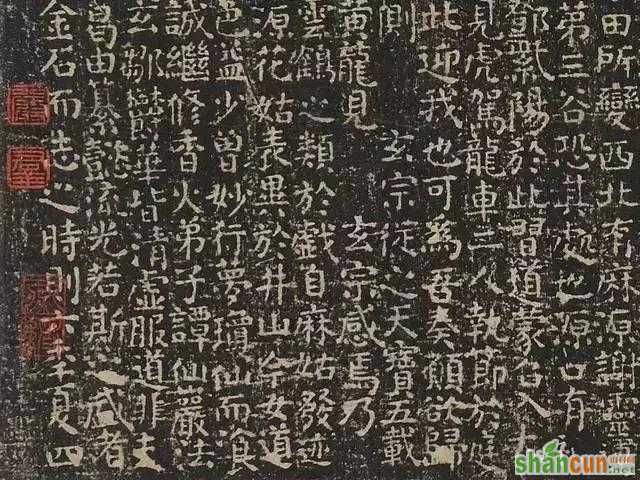 田所變西北有麻源謝靈
第三谷恐其處也源口有
鄧紫陽於此習道蒙召入大
見虎駕龍車二人執節於庭
此迎我也可為吾奏願欲歸
側 玄宗從之天寶五載
黃龍見 玄宗感焉乃
雲鶴之類於戲自麻姑發迹
源花姑表異於井山今女道
色益少曾妙行夢瓊仙而飡
誠繼修香火弟子譚仙巖法
玄鄒欝華皆清虛服道非夫
曷由纂懿流光若斯之盛者
金石而志之時則六年夏四
shancun
.net